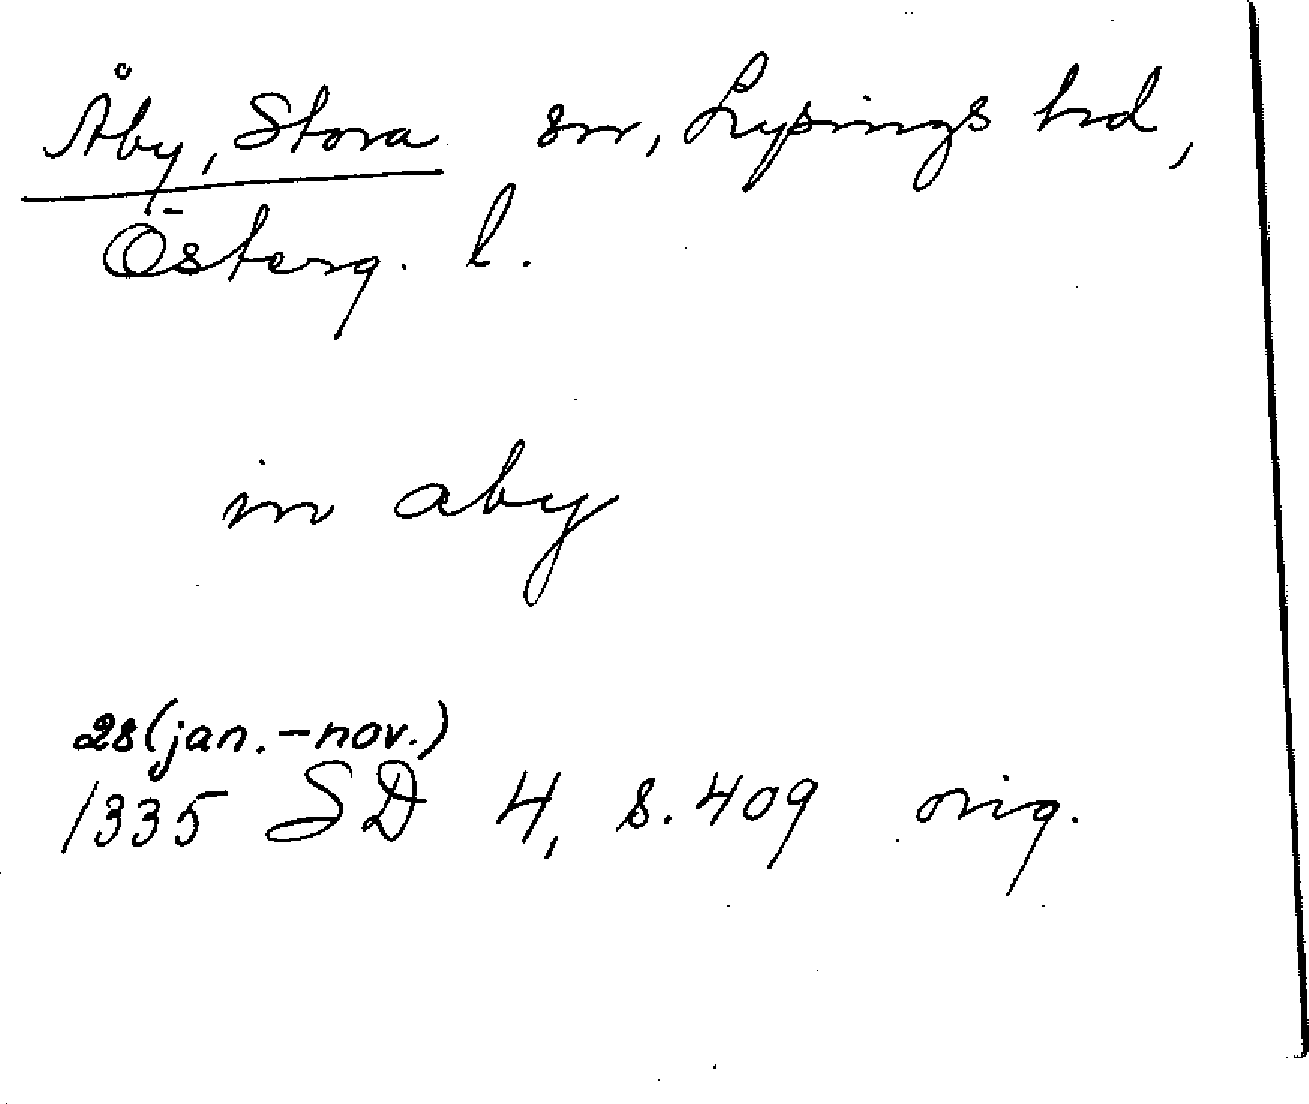 Åby, Stora sn, Lysings hd,
Österg. l.
in aby
28 (jan. - nov.)
1335 SD 4, s. 409 orig.